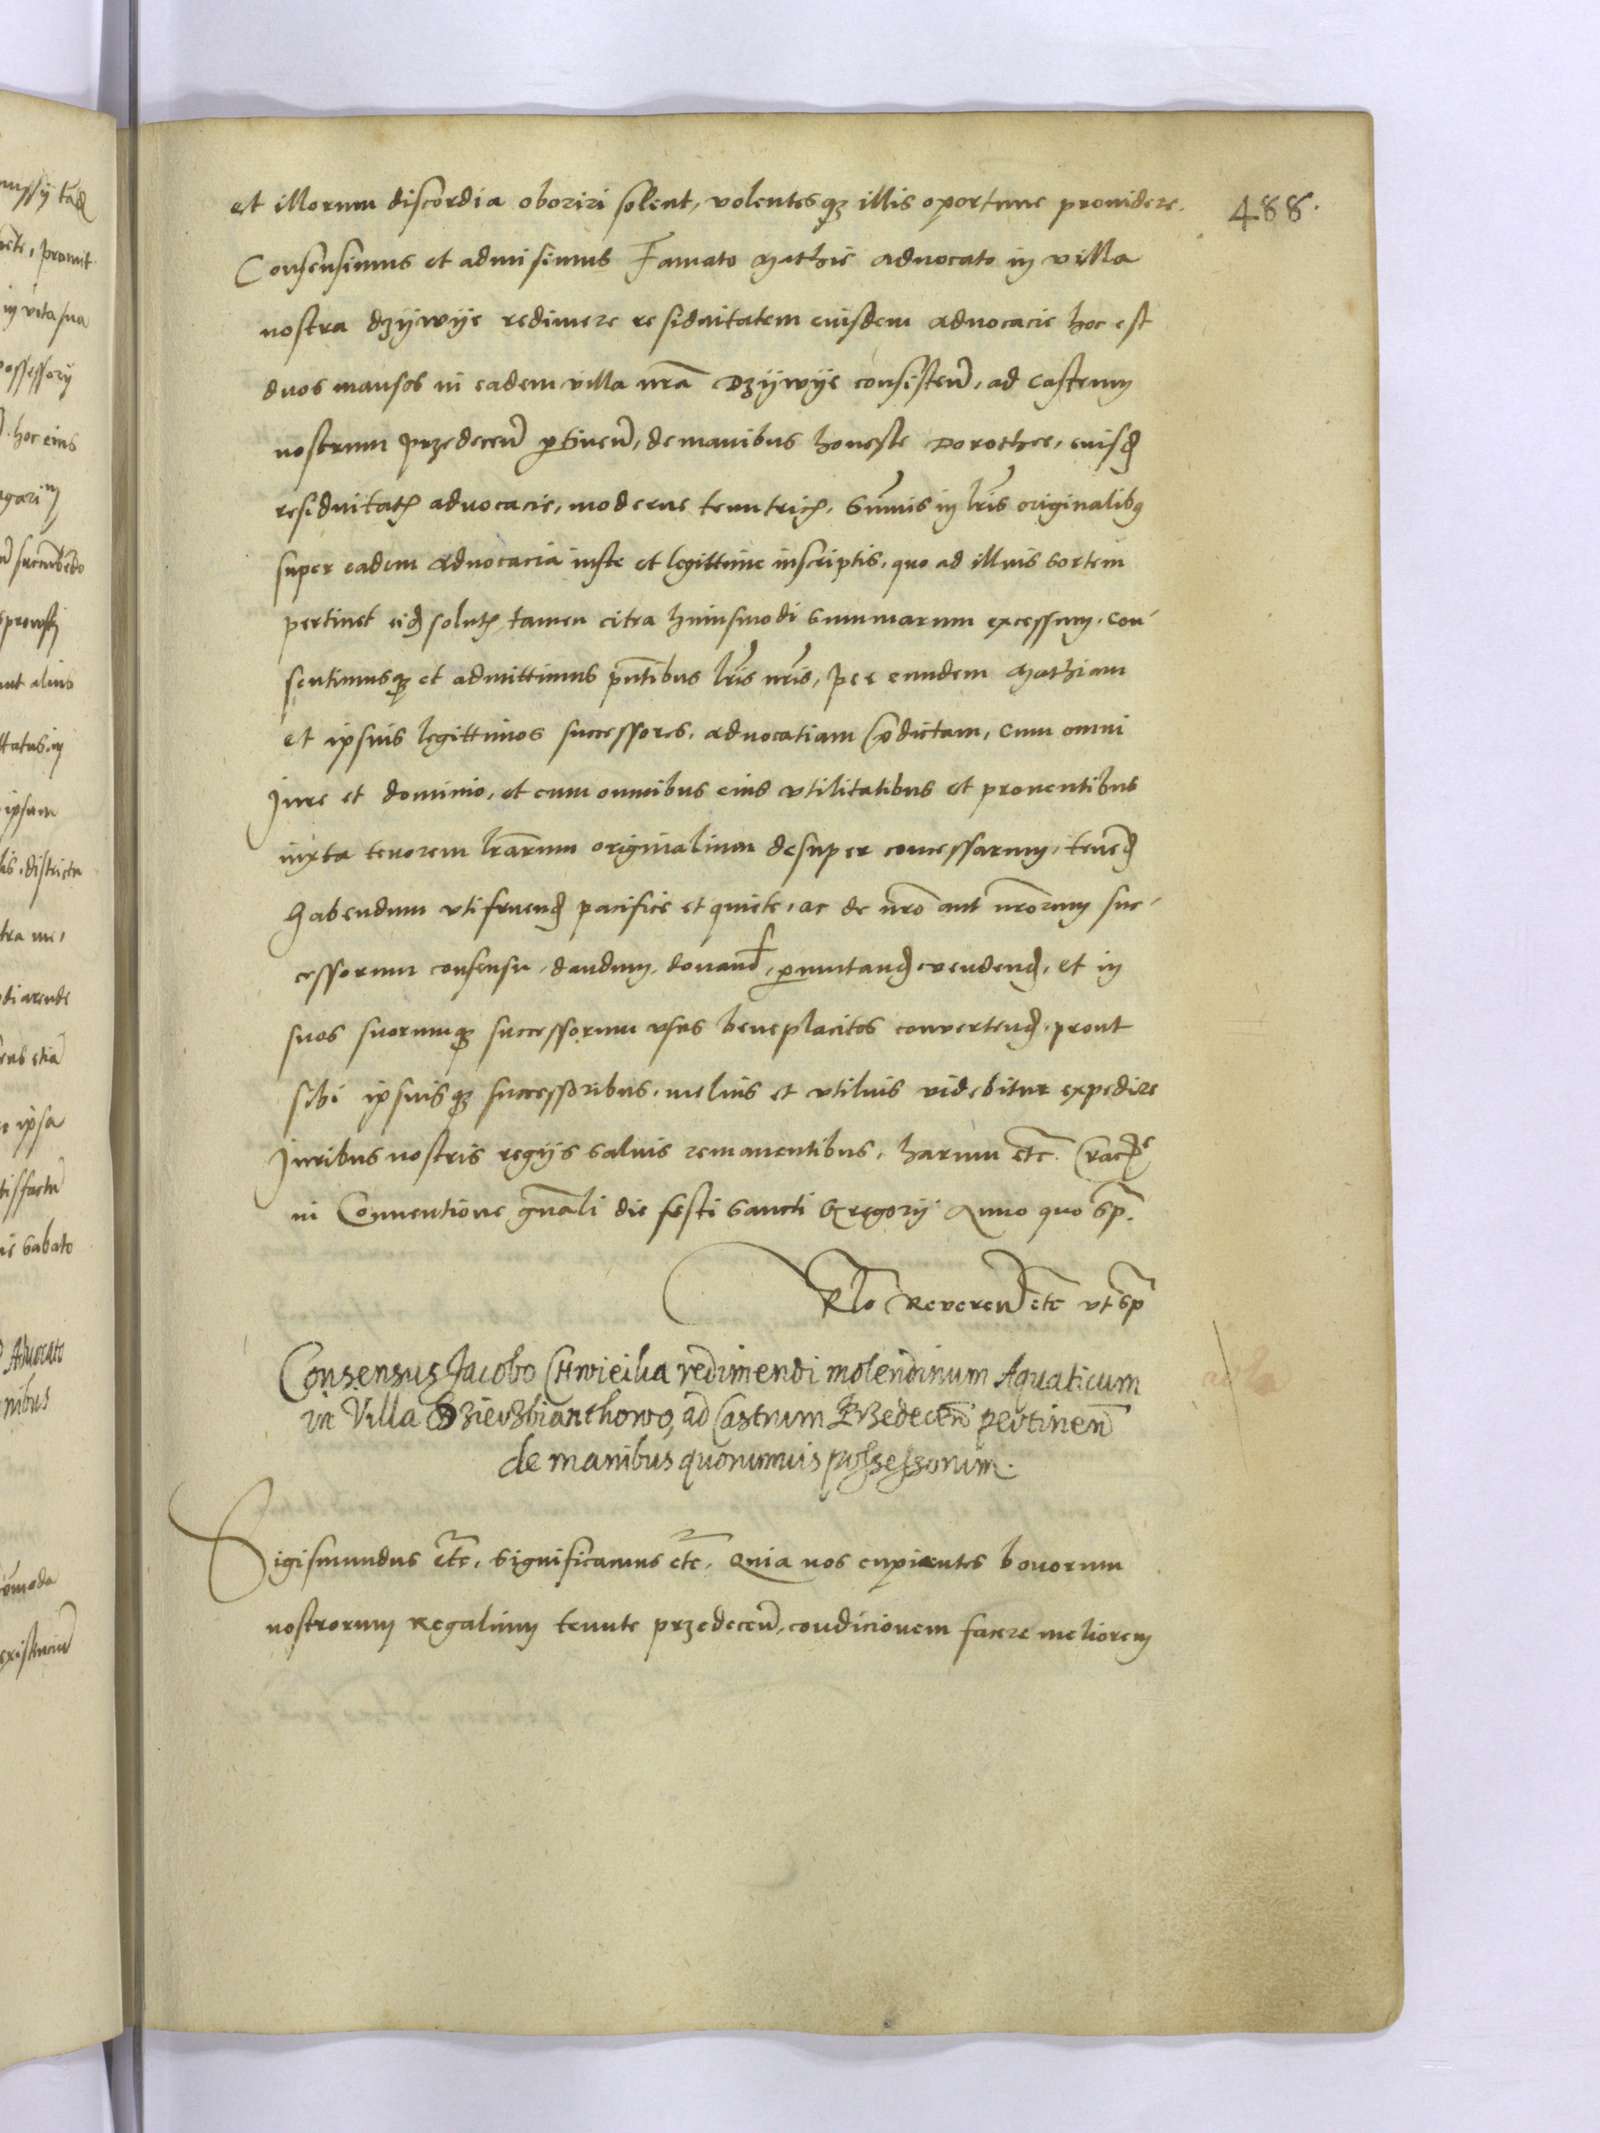 et illorum discordia oboriri soleat, volentesq3 illis oportune prouidere.
488.
Consensimus et admisimus Famato Mathie aduocato in villa
nostra dzijwije redimere residuitatem eiusdem aduocacie hoc est
duos mansos in eadem villa nra Dzijwije consisten, ad castrum
nostrum Przedecen ptinen, de manibus honeste Dorothee, eiusd
residuitatis aduocacie, moderne tenutricis, summis in lris originalibus
super eadem aduocacia iuste et legittime inscriptis, quo ad illius sortem
pertinet eid solutis, tamen citra huiusmodi summarum excessum. Con-
sentimusq3 et admittimus pntibus lris nris, per eundem Mathiam
et ipsius legittimos successores, aduocatiam pdictam, cum omni
Jure et dominio, et cum omnibus eius vtilitatibus et prouentibus
iuxta tenorem lrarum originalium desuper concessarum, tenend
habendum vtifruend pacifice et quiete, ac de nro aut nrorum suc-
cessorum consensu, dandum, donand, pmutand vendend, et in
suos suorumq3 successorum vsus beneplacitos conuertend, prout
sibi ipsiusq3 successoribus, melius et vtilius videbitur expedire
Juribus nostris regijs saluis remanentibus, harum etc. Crac
in Conuentione gnali die festi sancti Gregorij Anno quo sp.
Rlo Reueren etc vt sp
Consensus Jacobo Chwieilia redimendi molendinum Aquaticum
in Villa Dzierzbianthowo, ad Castrum Przedecen pertinen
de manibus quorumuis possessorum.
Sigismundus etc, significamus etc, Quia nos cupientes bonorum
nostrorum Regalium tenute przedecen, condicionem facere meliorem